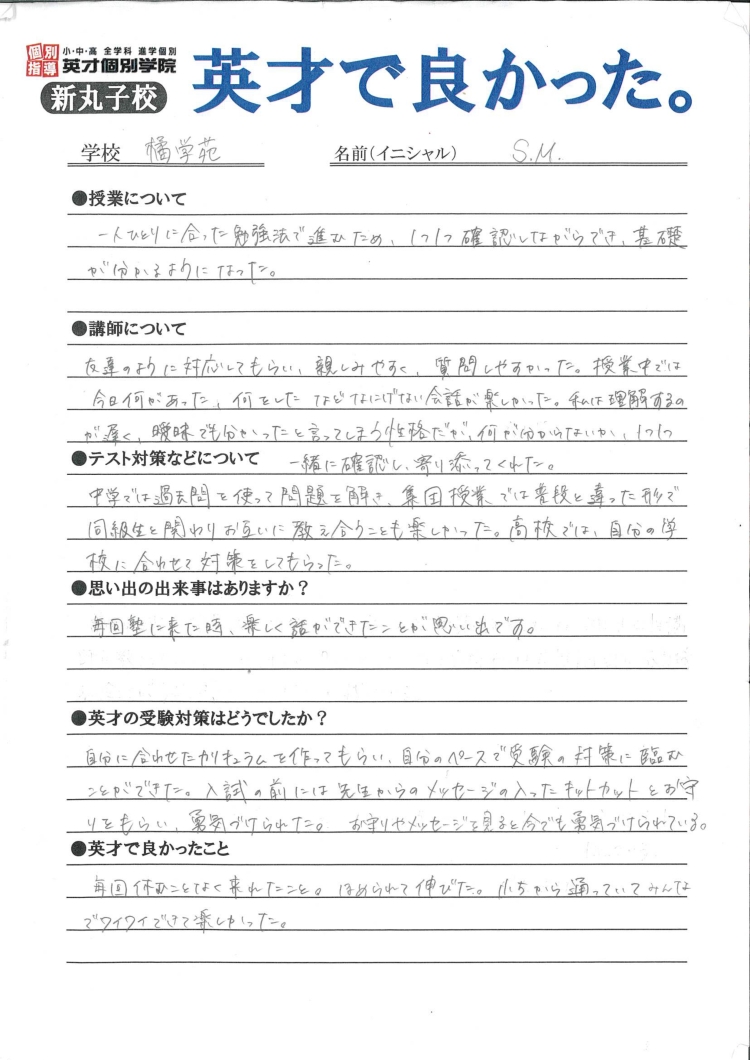 個別指導
小・中・高 全学科 進学個別
英才個別学院
新丸子校
英才で良かった。
学校 橘学苑 名前(イニシャル) S.M.
●授業について
一人ひとりに合った勉強法で進むため、1つ1つ確認しながらでき、基礎
が分かるようになった。
●講師について
友達のように対応してもらい、親しみやすく、質問しやすかった。授業中では
今日何があった、何をした などなにげない会話が楽しかった。私は理解するの
が遅く、曖昧でも分かったと言ってしまう性格だが、何が分からないか、1つ1つ
●テスト対策などについて 一緒に確認し、寄り添ってくれた。
中学では過去問を使って問題を解き、集団授業では普段と違った形で
同級生と関わりお互いに教え合うことも楽しかった。高校では、自分の学
校に合わせて対策をしてもらった。
●思い出の出来事はありますか?
毎回塾に来た時、楽しく話ができたことが思い出です。
●英才の受験対策はどうでしたか?
自分に合わせたカリキュラムを作ってもらい、自分のペースで受験の対策に臨む
ことができた。入試の前には先生からのメッセージの入ったキットカットとお守
りをもらい、勇気づけられた。 お守りやメッセージを見ると今でも勇気づけられている。
●英才で良かったこと
毎回休むことなく来れたこと。ほめられて伸びた。小5から通っていてみんな
でワイワイできて楽しかった。